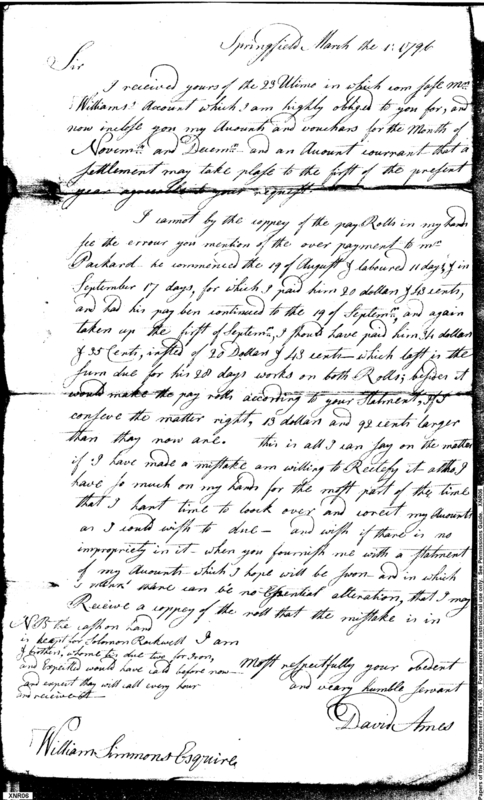 Springfield March the 1: 1796
Sir
I received yours of the 23 Ultimo in which com safe Mr
Williams' Account which I am highly obliged to you for, and
now inclose you my Acounts and vouchers for the Month of
Novemr and Decemr and an Acount currant that a
settlement may take plase to the first of the present
year agreeable to your request.
I cannot by the coppey of the pay Rolls in my hands
see the errour you mention of the over payment to mr
Packard he commenced the 19 of August & laboured 11 days, & in
September 17 days, for which I paid him 20 dollars & 43 cents,
and had his pay ben continued to the 19 of Septemr, and again
taken up the first of Septemr, I should have paid him 34 dollars
& 35 Cents, insted of 20 Dollars & 43 cents - which last is the
sum due for his 28 days works on both Rolls; besides it
would make the pay rolls according to your Statment, if I
conseve the matter right, 13 dollars and 92 cents larger
than thay now are. this is all I can say on the matter
if I have made a mistake am willing to Rectefy it altho I
have so much on my hands for the most part of the time
that I hant time to loock over and corect my Acounts
as I could wish to due - and wish if there is no
impropriety in it - when you fournish me with a statment
of my Acounts which I hope will be soon - and in which
I think thare can be no Essential alteration, that I may
Receive a coppey of the roll that the mistake is in
NB the cash on hand
is keept for Solomon Rockwell I am
& brothers, whome is due two for Iron,
and Expected would have cald before now -
and expect thay will call every hour
and receive it -
Most respectfully your obedent
and veary humble servant
David Ames
William Simmons Esquire
XNR06
Papers of the War Department 1784 - 1800. For research and instructional use only. See Permissions Guide. XNR06